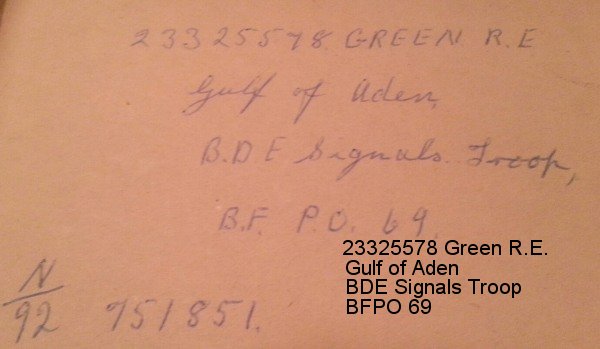 23325578 GREEN R.E
Gulf of Aden,
B.D E Signals Troop,
B.F. P.O. 69.
23325578 Green R.E.
Gulf of Aden
BDE Signals Troop
BFPO 69
N
92 751851.